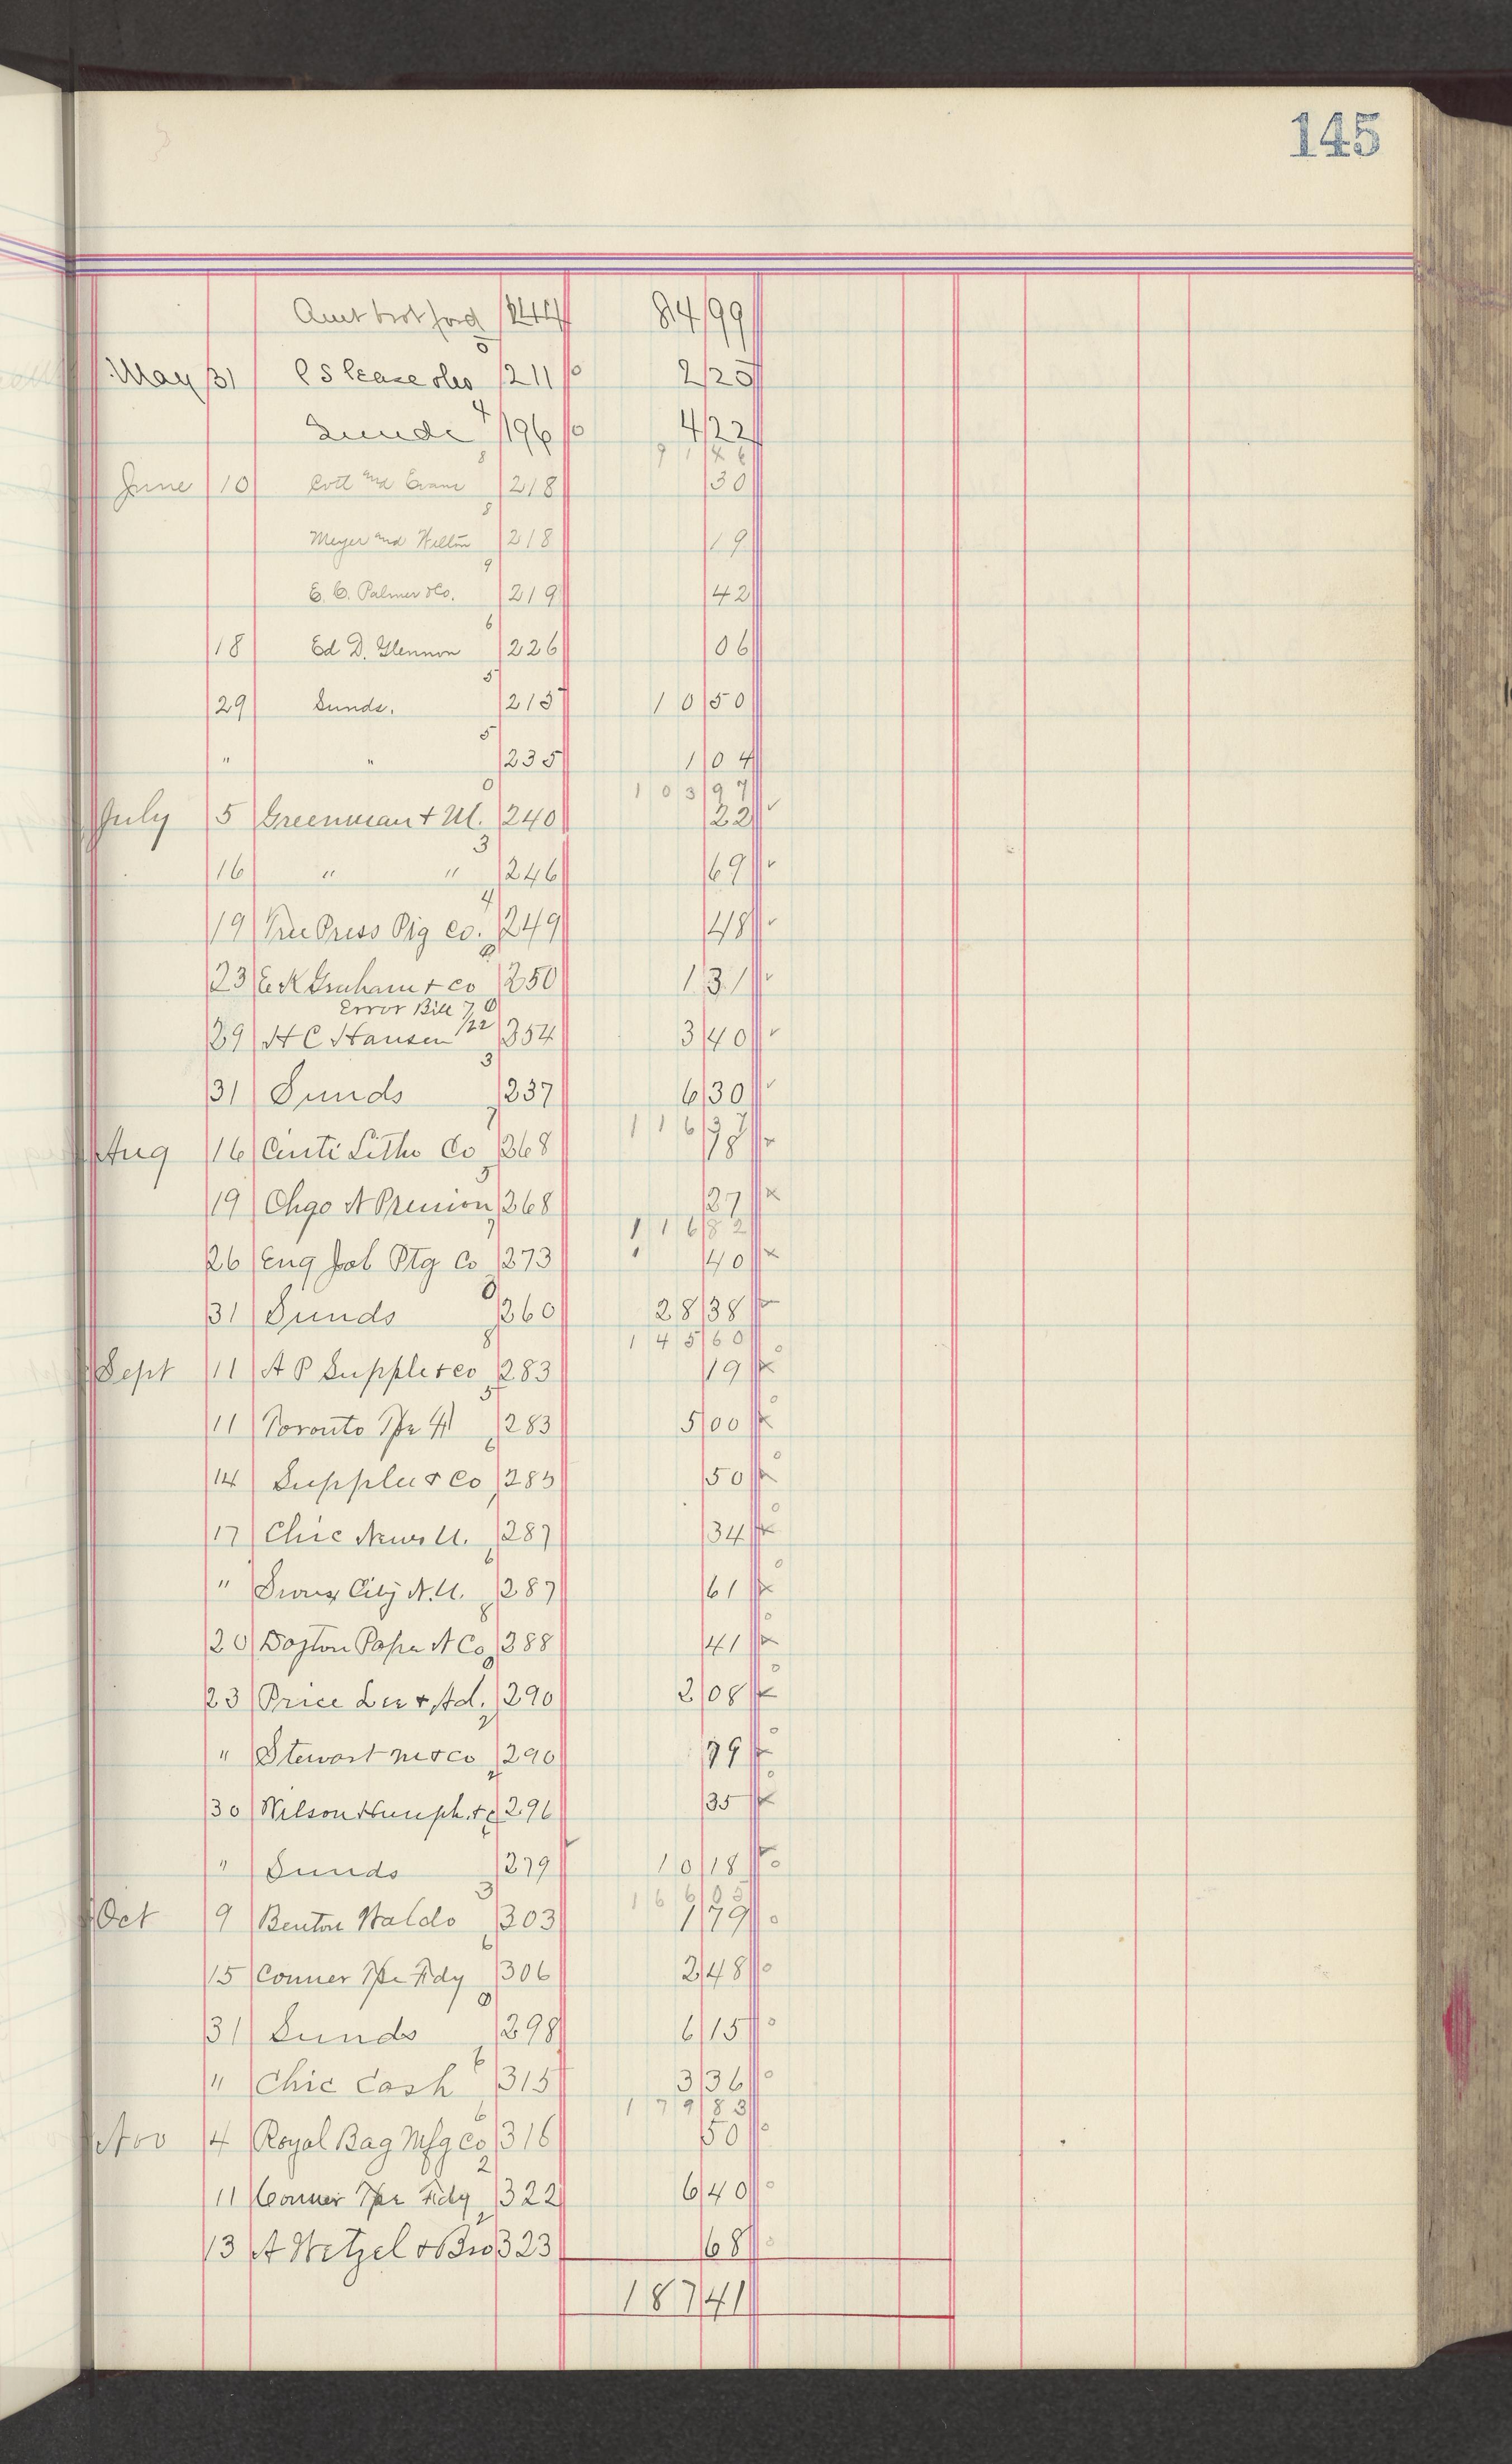 145
Amt brot ford 244 84 99
0
May 31 P S Pease &Co 211 0 2 25
4
Sunds 196 0 4 22
91 46
8
June 10 Cott and Evans 218 30
8
Meyer and Wilton 218 19
9
E. C. Palmer &Co. 219 42
6
18 Ed D. Glennon 226 06
5
29 Sunds. 215 10 50
5
" " 235 1 04
103 97
0
July 5 Greenman + M. 240 22
3
16 " " 246 69
4
19 Free Press Ptg Co. 249 48
23 E K Graham + Co 250 1 31
Error Bill 7/22 0
29 H C Hansen 254 3 40
3
31 Sunds 237 6 30
116 37
7
Aug 16 Cinti Litho Co 268 18
5
19 Chgo N P Union 268 27
116 82
7
26 Eng Job Ptg Co 273 40
0
31 Sunds 260 28 38
145 60
8
Sept 11 A P Supple + Co 283 19
5
11 Toronto Tpe Fd 283 5 00
6
14 Supple + Co 285 50
17 Chic News U. 287 34
6
" Sioux City N. U. 287 61
8
20 Dayton Paper N Co 288 41
0
23 Price Lee + Ad. 290 2 08
" Stewart M + Co 290 79
30 Wilson Humph. + C 296 35
" Sunds 279 10 18
166 05
3
Oct 9 Benton Waldo 303 1 79
6
15 Conner Tpe Fdy 306 2 48
0
31 Sunds 298 6 15
6
" Chic Cash 315 3 36
179 83
6
Nov 4 Royal Bag Mfg Co 316 50
2
11 Conner Tpe Fdy 322 6 40
2
13 A Wetzel & Bro 323 68
187 41